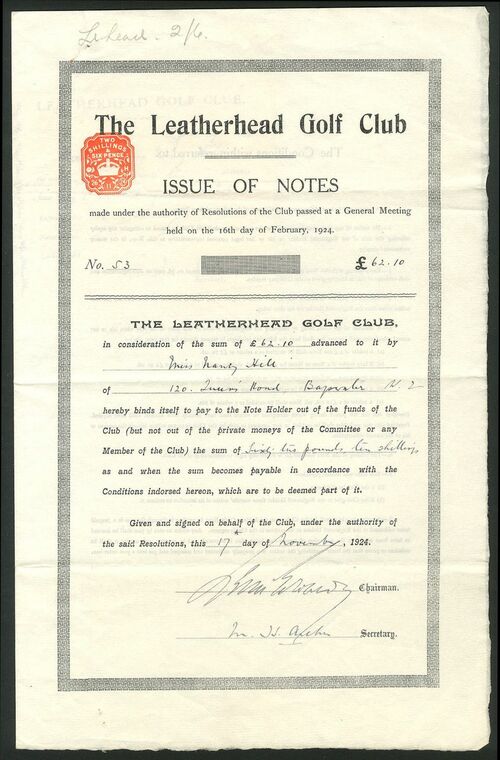 L'head. 2/6.
The Leatherhead Golf Club
TWO SHILLINGS & SIX PENCE
ISSUE OF NOTES
made under the authority of Resolutions of the Club passed at a General Meeting
held on the 16th day of February, 1924.
No. 53 £62.10
THE LEATHERHEAD GOLF CLUB,
in consideration of the sum of £62.10 advanced to it by
Miss Hill
of 120. Road Bayswater
hereby binds itself to pay to the Note Holder out of the funds of the
Club (but not out of the private moneys of the Committee or any
Member of the Club) the sum of Sixty two pounds ten shillings
as and when the sum becomes payable in accordance with the
Conditions indorsed hereon, which are to be deemed part of it.
Given and signed on behalf of the Club, under the authority of
the said Resolutions, this 17th day of November, 1924.
Chairman.
Secretary.